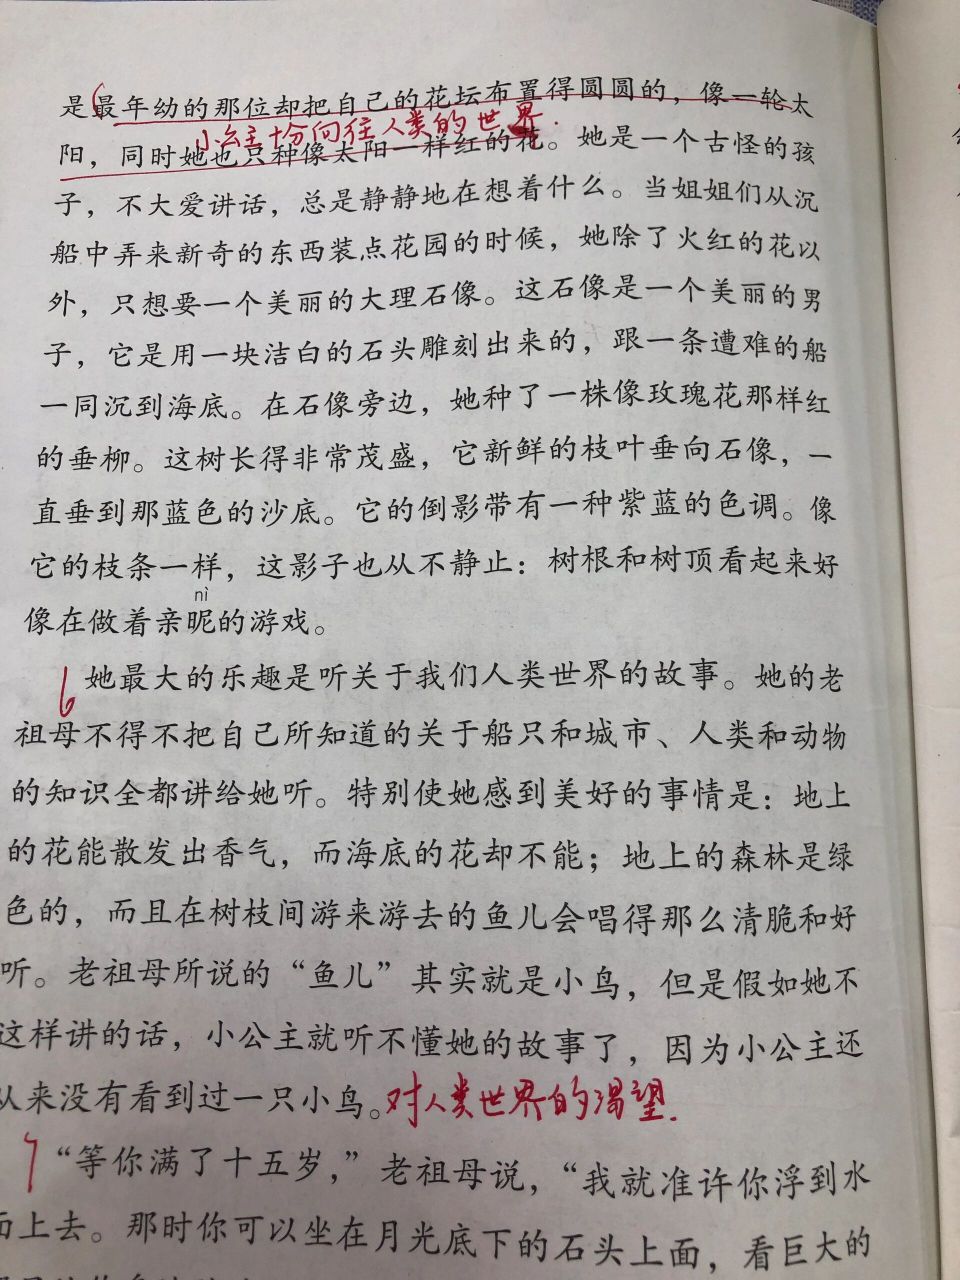 是最年幼的那位却把自己的花坛布置得圆圆的，像一轮太
小公主十分向往人类的世界.
阳，同时她也只种像太阳一样红的花。她是一个古怪的孩
子，不大爱讲话，总是静静地在想着什么。当姐姐们从沉
船中弄来新奇的东西装点花园的时候，她除了火红的花以
外，只想要一个美丽的大理石像。这石像是一个美丽的男
子，它是用一块洁白的石头雕刻出来的，跟一条遭难的船
一同沉到海底。在石像旁边，她种了一株像玫瑰花那样红
的垂柳。这树长得非常茂盛，它新鲜的枝叶垂向石像，一
直垂到那蓝色的沙底。它的倒影带有一种紫蓝的色调。像
它的枝条一样，这影子也从不静止：树根和树顶看起来好
nì
像在做着亲昵的游戏。
6 她最大的乐趣是听关于我们人类世界的故事。她的老
祖母不得不把自己所知道的关于船只和城市、人类和动物
的知识全都讲给她听。特别使她感到美好的事情是：地上
的花能散发出香气，而海底的花却不能；地上的森林是绿
色的，而且在树枝间游来游去的鱼儿会唱得那么清脆和好
听。老祖母所说的“鱼儿”其实就是小鸟，但是假如她不
这样讲的话，小公主就听不懂她的故事了，因为小公主还
从来没有看到过一只小鸟。对人类世界的渴望.
7 “等你满了十五岁，”老祖母说，“我就准许你浮到水
面上去。那时你可以坐在月光底下的石头上面，看巨大的